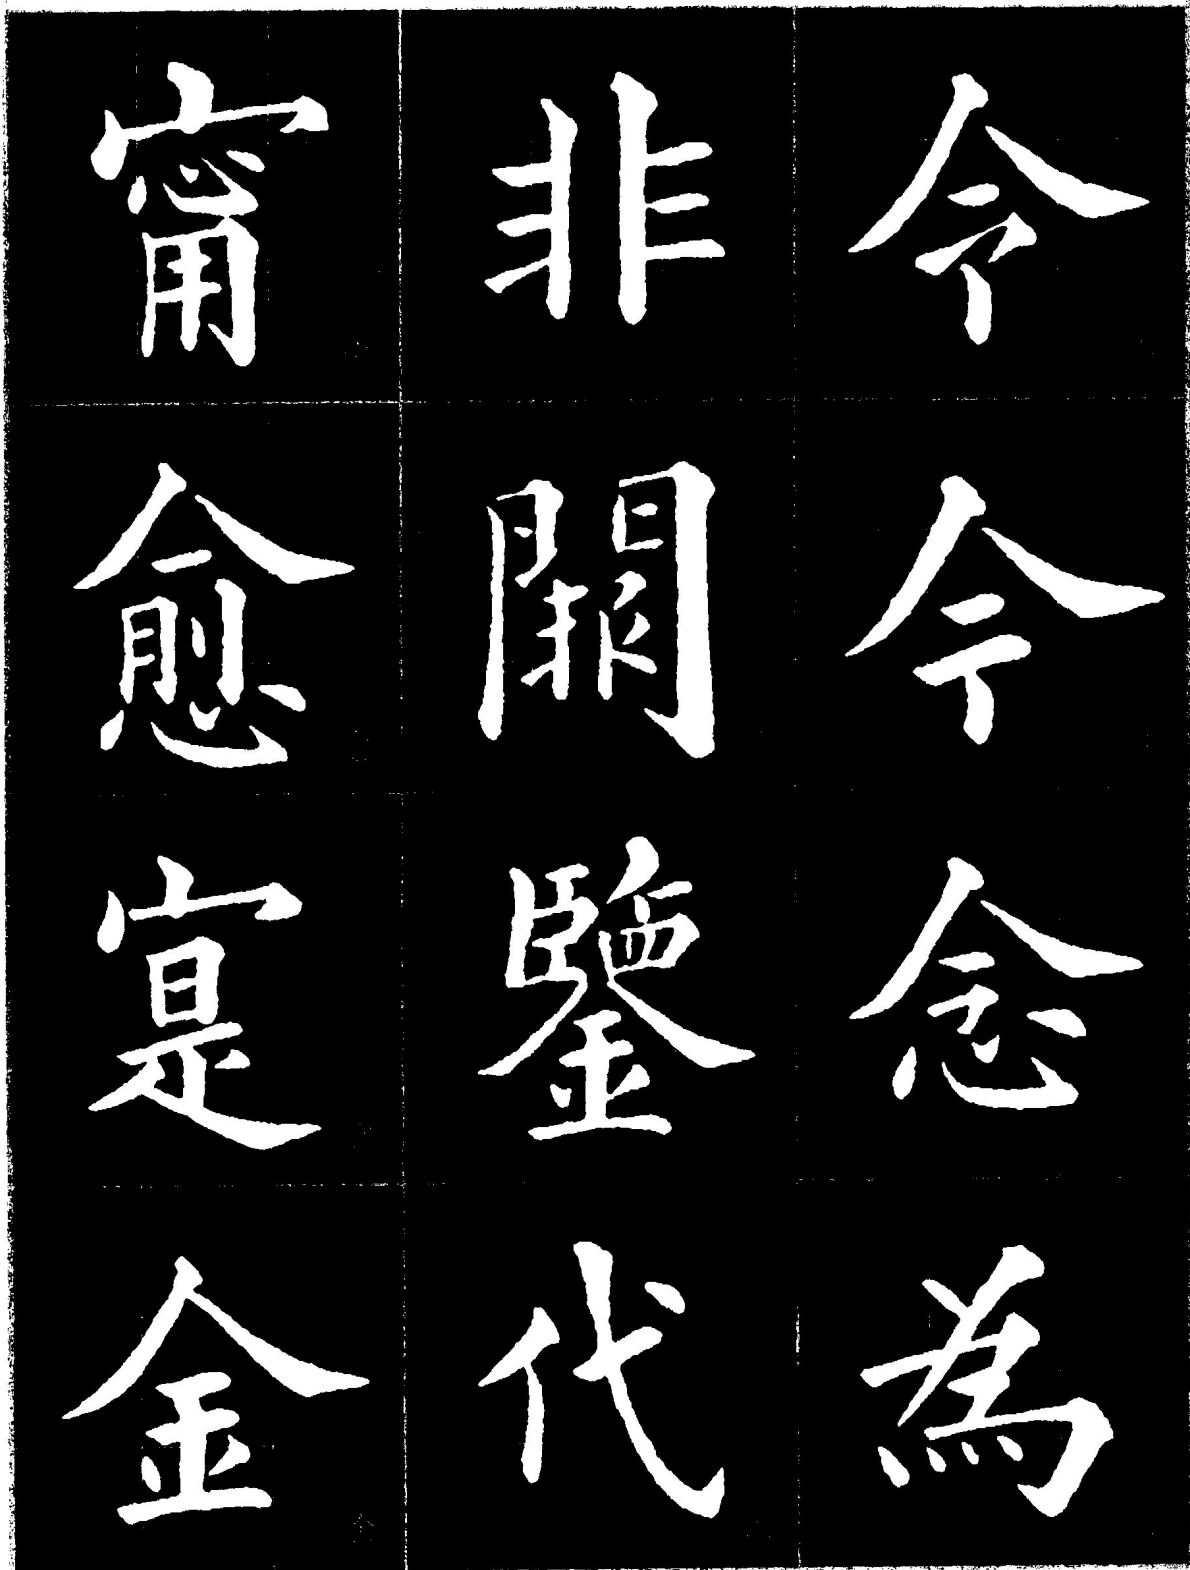 令今念為
非關鑒代
甯愈寔金